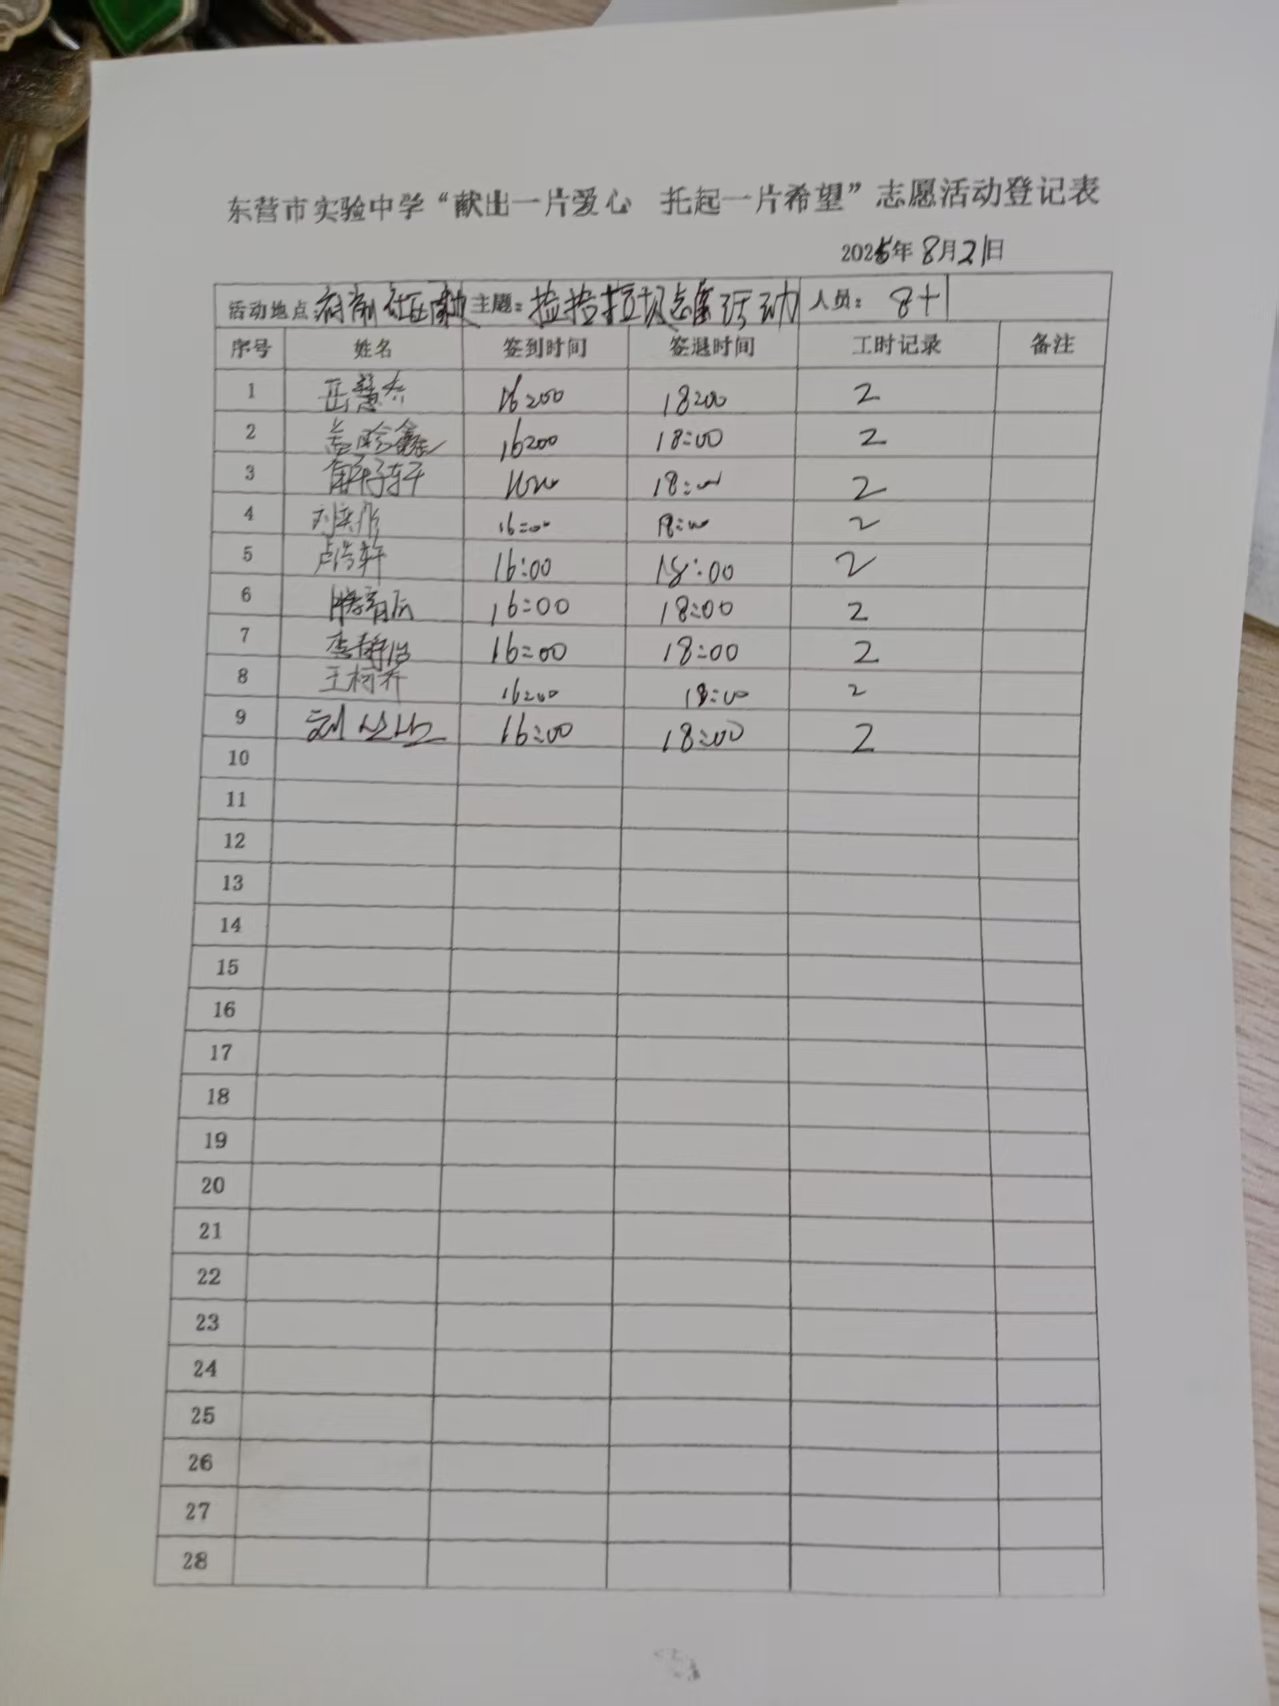 东营市实验中学“献出一片爱心 托起一片希望”志愿活动登记表
2025年8月21日
活动地点 府前社区 主题：捡拾垃圾志愿活动 人员：8+1
序号 姓名 签到时间 签退时间 工时记录 备注
1 岳慧杰 16:00 18:00 2
2 16:00 18:00 2
3 子轩 18:00 2
4 16:00 18:00 2
5 卢浩轩 16:00 18:00 2
6 16:00 18:00 2
7 李静怡 16:00 18:00 2
8 王柯乔 16:00 18:00 2
9 16:00 18:00 2
10
11
12
13
14
15
16
17
18
19
20
21
22
23
24
25
26
27
28